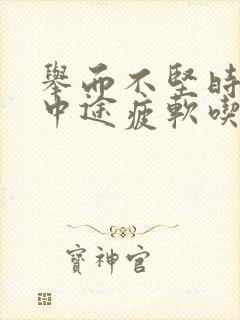 舉而不堅時
中途疲軟喫
寳神官